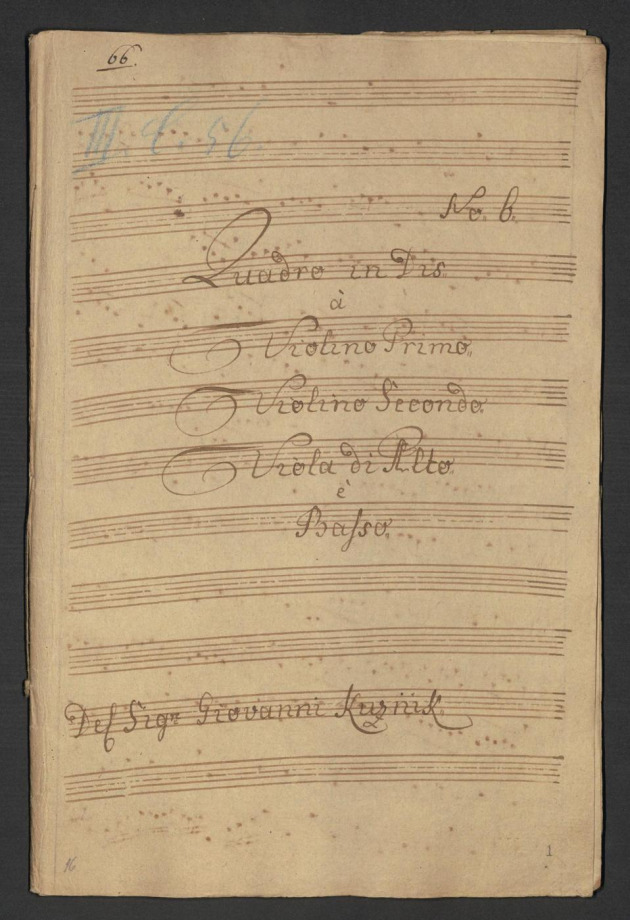 66.
III. C. 56
No. 6.
Quadro in Dis
à
Violino Primo.
Violino Secondo.
Viola di Alto.
è
Basso.
Del Sigr Giovanni Kuzniik.
16
1